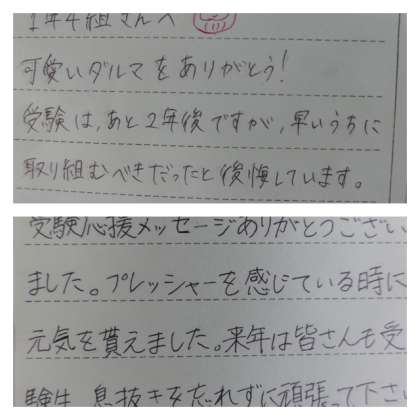 1年4組さんへ
可愛いダルマをありがとう!
受験は,あと2年後ですが,早いうちに
取り組むべきだったと後悔しています。
受験応援メッセージありがとうござい
ました。プレッシャーを感じている時に
元気を貰えました。来年は皆さんも受
験生、息抜きを忘れずに頑張って下さい